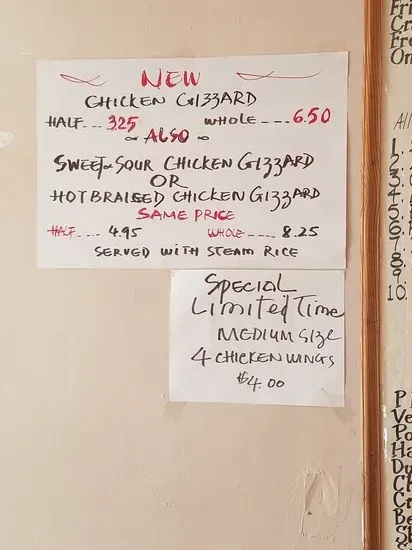 NEW
CHICKEN GIZZARD
HALF --- 3.25 WHOLE --- 6.50
ALSO
SWEET & SOUR CHICKEN GIZZARD
OR
HOT BRAISED CHICKEN GIZZARD
SAME PRICE
HALF --- 4.95 WHOLE --- 8.25
SERVED WITH STEAM RICE
SPECIAL
Limited Time
MEDIUM SIZE
4 CHICKEN WINGS
$4.00
Fr
On
All
1.
2.
3.
4.
5.
6.
7.
8.
9.
10.
P
Ve
Po
Ha
Du
Ch
Cr
Be